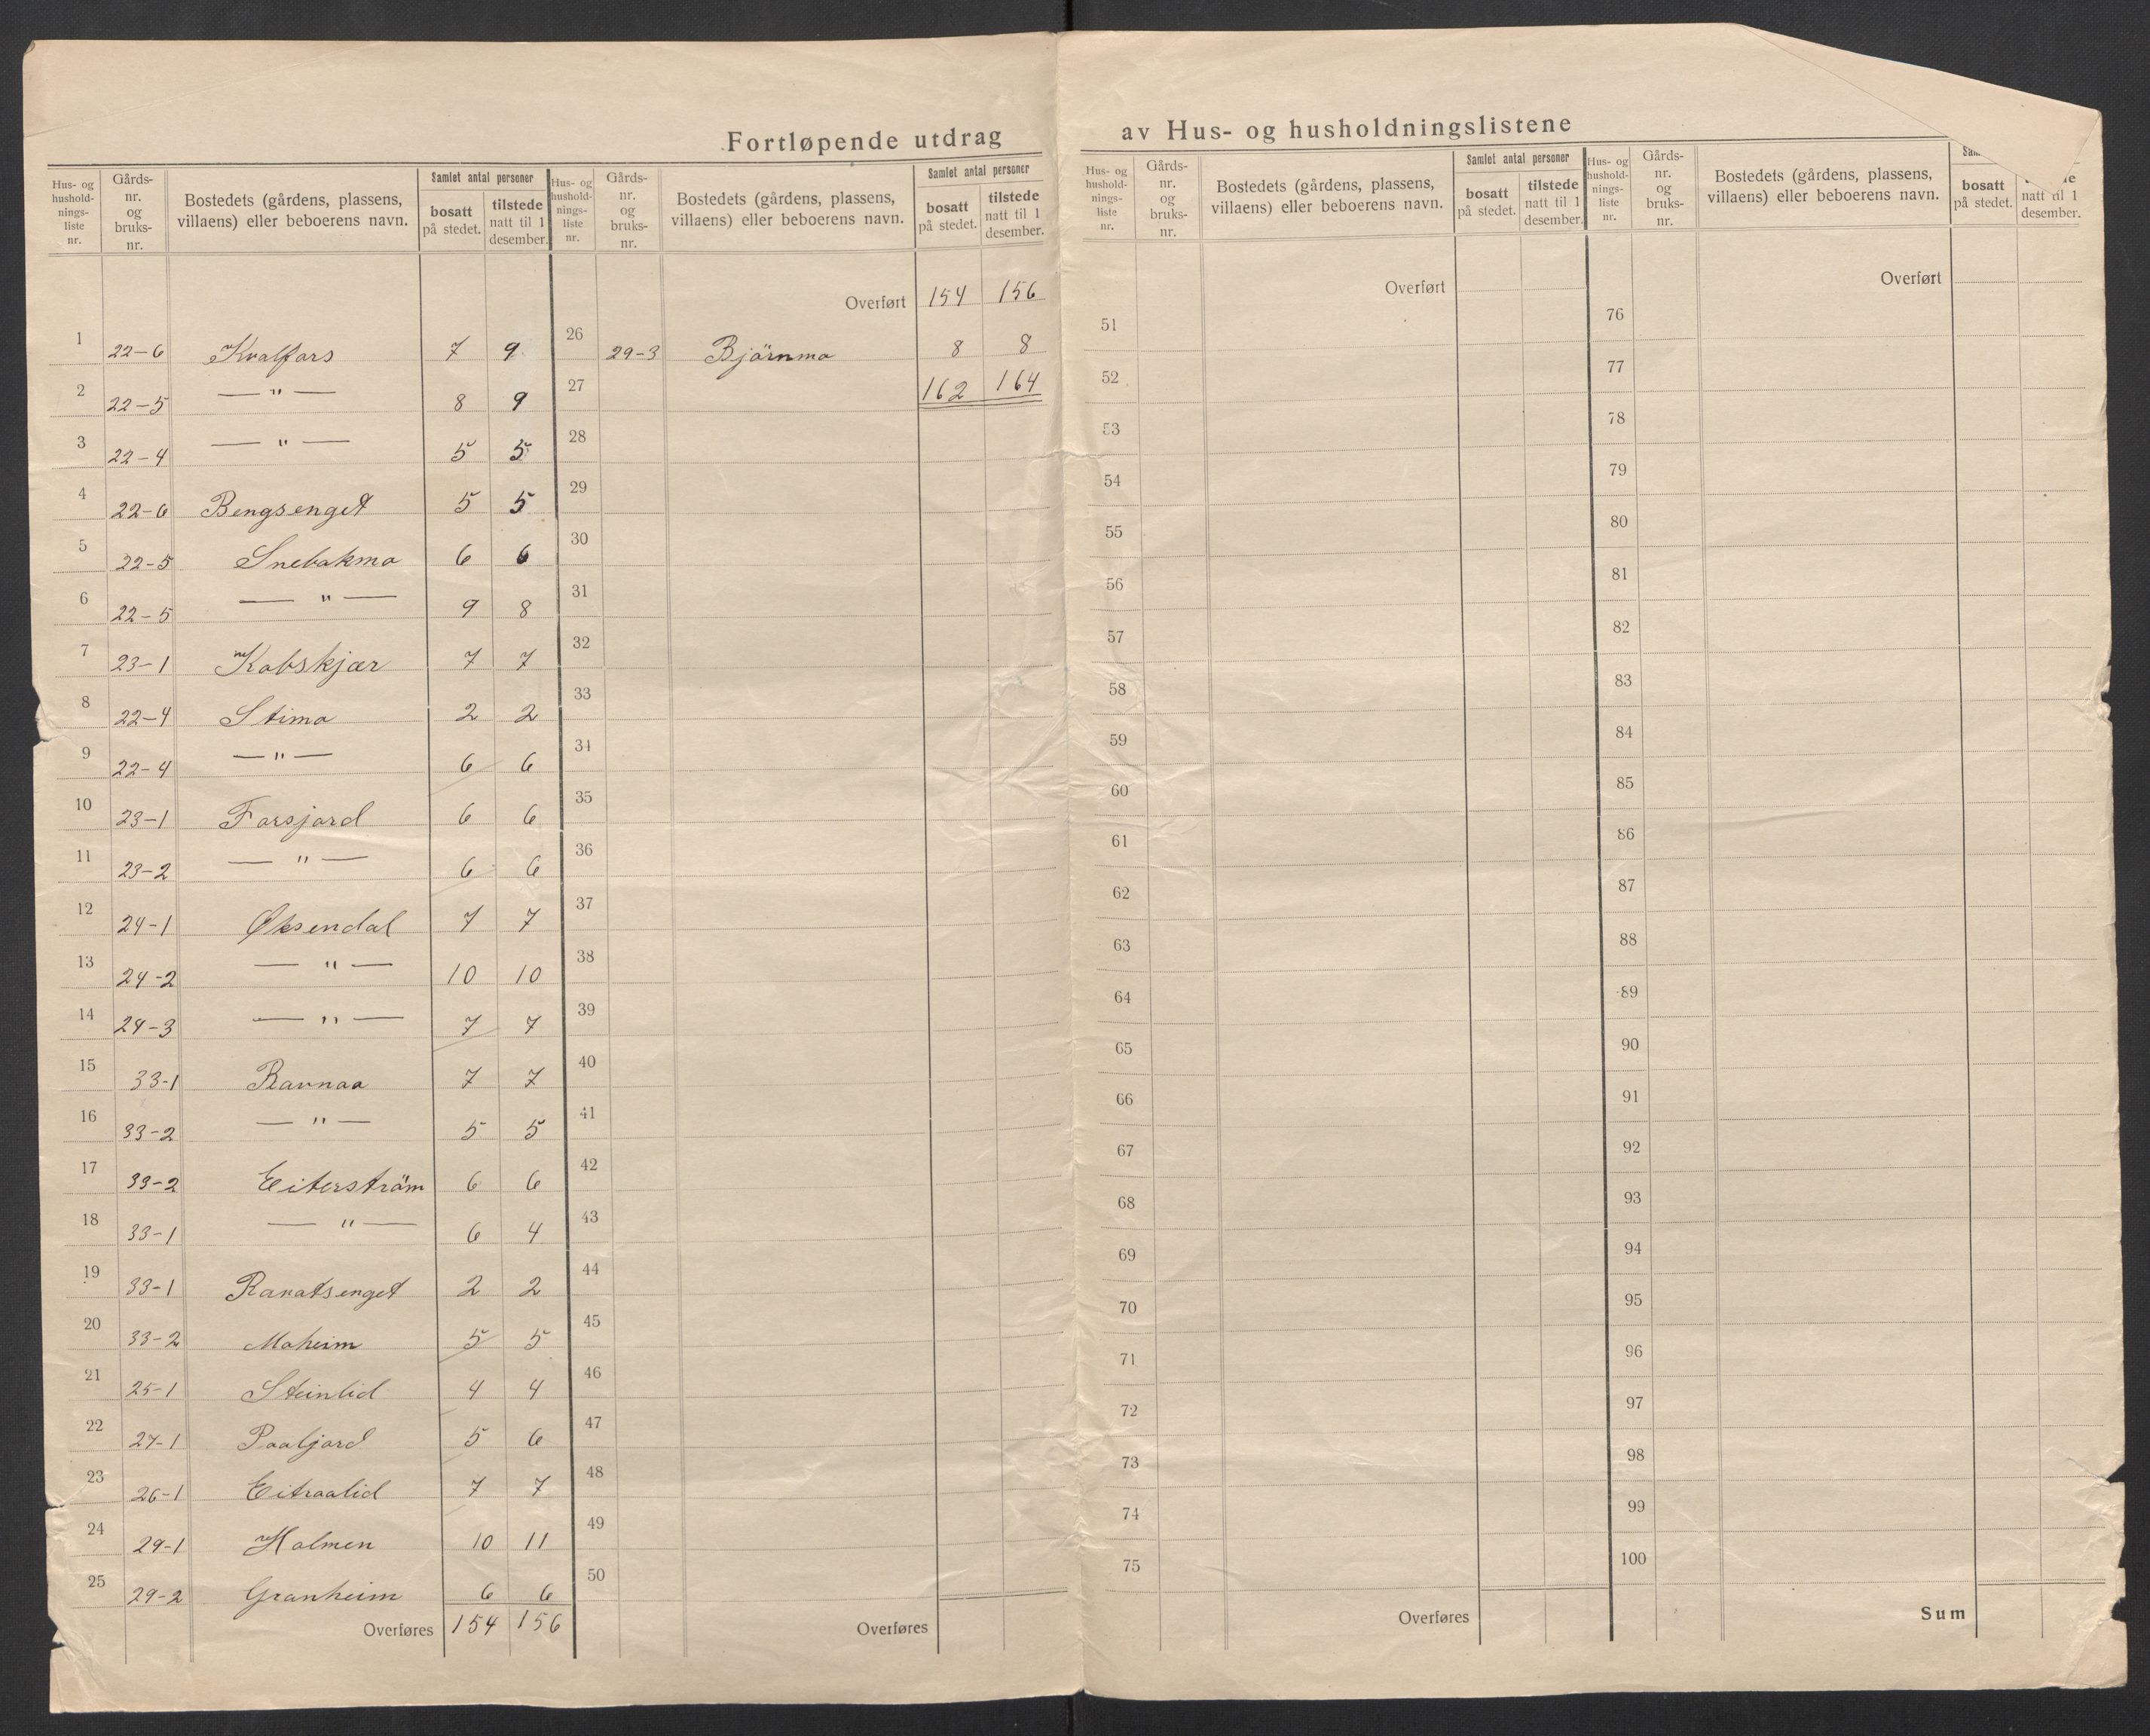 Fortløpende utdrag av Hus- og husholdningslistene
Hus- og hushold-nings-liste nr. | Gårds-nr. og bruks-nr. | Bostedets (gårdens, plassens, villaens) eller beboerens navn. | Samlet antal personer | bosatt på stedet. | tilstede natt til 1 desember.
1 22-6 Kvalfors 7 9
2 22-5 — " — 8 9
3 22-4 — " — 5 5
4 22-6 Bengsenget 5 5
5 22-5 Snebakmo 6 6
6 22-5 — " — 9 8
7 23-1 Kobskjær 7 7
8 22-4 Stimo 2 2
9 22-4 — " — 6 6
10 23-1 Forsjord 6 6
11 23-2 — " — 6 6
12 24-1 Øksendal 7 7
13 24-2 — " — 10 10
14 24-3 — " — 7 7
15 33-1 Ravnaa 7 7
16 33-2 — " — 5 5
17 33-2 Eiterström 6 6
18 33-1 — " — 6 4
19 33-1 Ranatsenget 2 2
20 33-2 Moheim 5 5
21 25-1 Steinlid 4 4
22 27-1 Paaljord 5 6
23 26-1 Eitraalid 7 7
24 29-1 Holmen 10 11
25 29-2 Granheim 6 6
Overføres 154 156
Hus- og hushold-nings-liste nr. | Gårds-nr. og bruks-nr. | Bostedets (gårdens, plassens, villaens) eller beboerens navn. | Samlet antal personer | bosatt på stedet. | tilstede natt til 1 desember.
Overført 154 156
26 29-3 Björnmo 8 8
27 162 164
28
29
30
31
32
33
34
35
36
37
38
39
40
41
42
43
44
45
46
47
48
49
50
Overføres
Hus- og hushold-nings-liste nr. | Gårds-nr. og bruks-nr. | Bostedets (gårdens, plassens, villaens) eller beboerens navn. | Samlet antal personer | bosatt på stedet. | tilstede natt til 1 desember.
Overført
51
52
53
54
55
56
57
58
59
60
61
62
63
64
65
66
67
68
69
70
71
72
73
74
75
Overføres
Hus- og hushold-nings-liste nr. | Gårds-nr. og bruks-nr. | Bostedets (gårdens, plassens, villaens) eller beboerens navn. | bosatt på stedet. | natt til 1 desember.
Overført
76
77
78
79
80
81
82
83
84
85
86
87
88
89
90
91
92
93
94
95
96
97
98
99
100
Sum